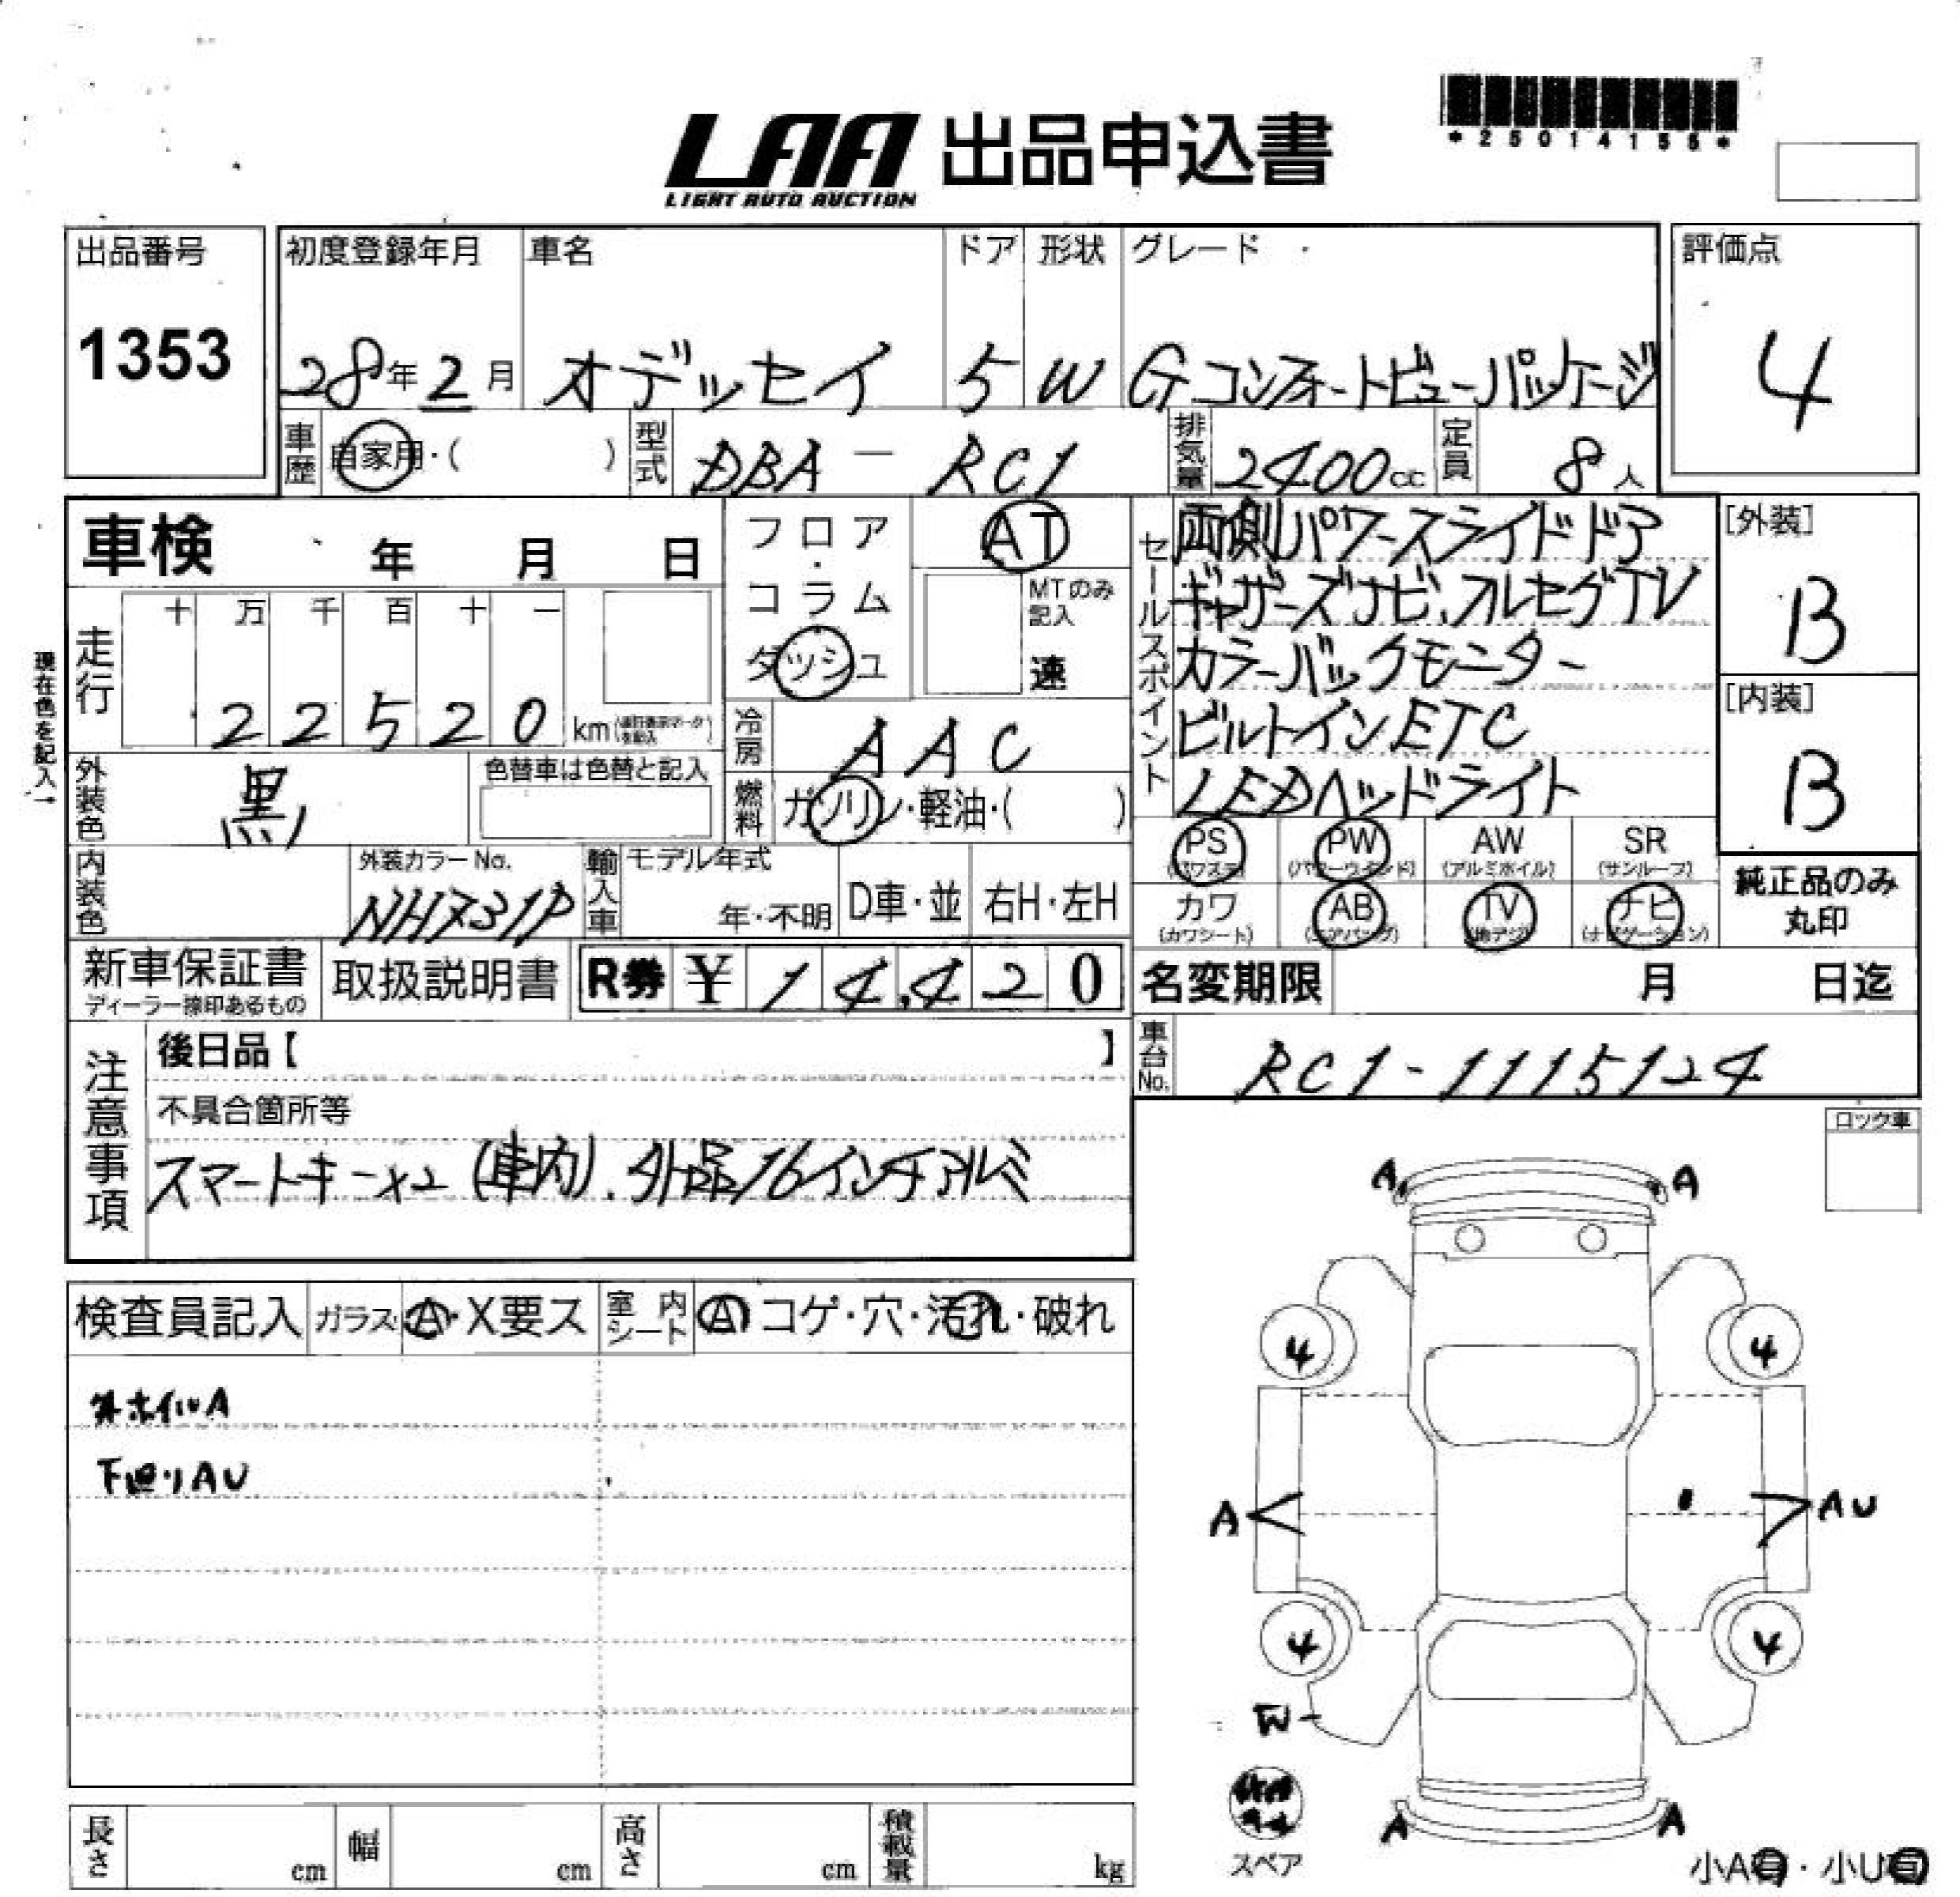 *25014155*
LAA 出品申込書
LIGHT AUTO AUCTION
出品番号
1353
初度登録年月
28年2月
車名
オデッセイ
ドア
5
形状
W
グレード
G コンフォートビューパッケージ
評価点
4
車歴 自家用・( )
型式 DBA - RC1
排気量 2400cc
定員 8人
車検 年 月 日
フロア・コラム
ダッシュ
AT
MTのみ記入
速
セールスポイント
両側パワースライドドア
ギャザーズナビ.フルセグTV
カラーバックモニター
ビルトインETC
LEDヘッドライト
[外装]
B
[内装]
B
現在色を記入→
走行
十 万 千 百 十 一
22520 km
冷房 AAC
燃料 ガソリン・軽油・( )
外装色 黒
色替車は色替と記入
内装色
外装カラーNo.
NH731P
輸入車
モデル年式
年・不明
D車・並
右H・左H
PS (パワステ)
PW (パワーウインド)
AW (アルミホイル)
SR (サンルーフ)
カワ (カワシート)
AB (エアバッグ)
TV (地デジ)
ナビ (ナビゲーション)
純正品のみ
丸印
新車保証書
ディーラー捺印あるもの
取扱説明書
R券 ¥ 14,420
名変期限 月 日迄
車台No. RC1-1115124
注意事項
後日品【 】
不具合箇所等
スマートキーx2 (車内).外品16インチアルミ
ロック車
検査員記入
ガラス A・X要ス
室内シート A コゲ・穴・汚れ・破れ
外ホイルA
下回りAU
A A
4 4
A AU
4 4
W
スペア
A A
小A有・小U有
長さ cm
幅 cm
高さ cm
積載量 kg